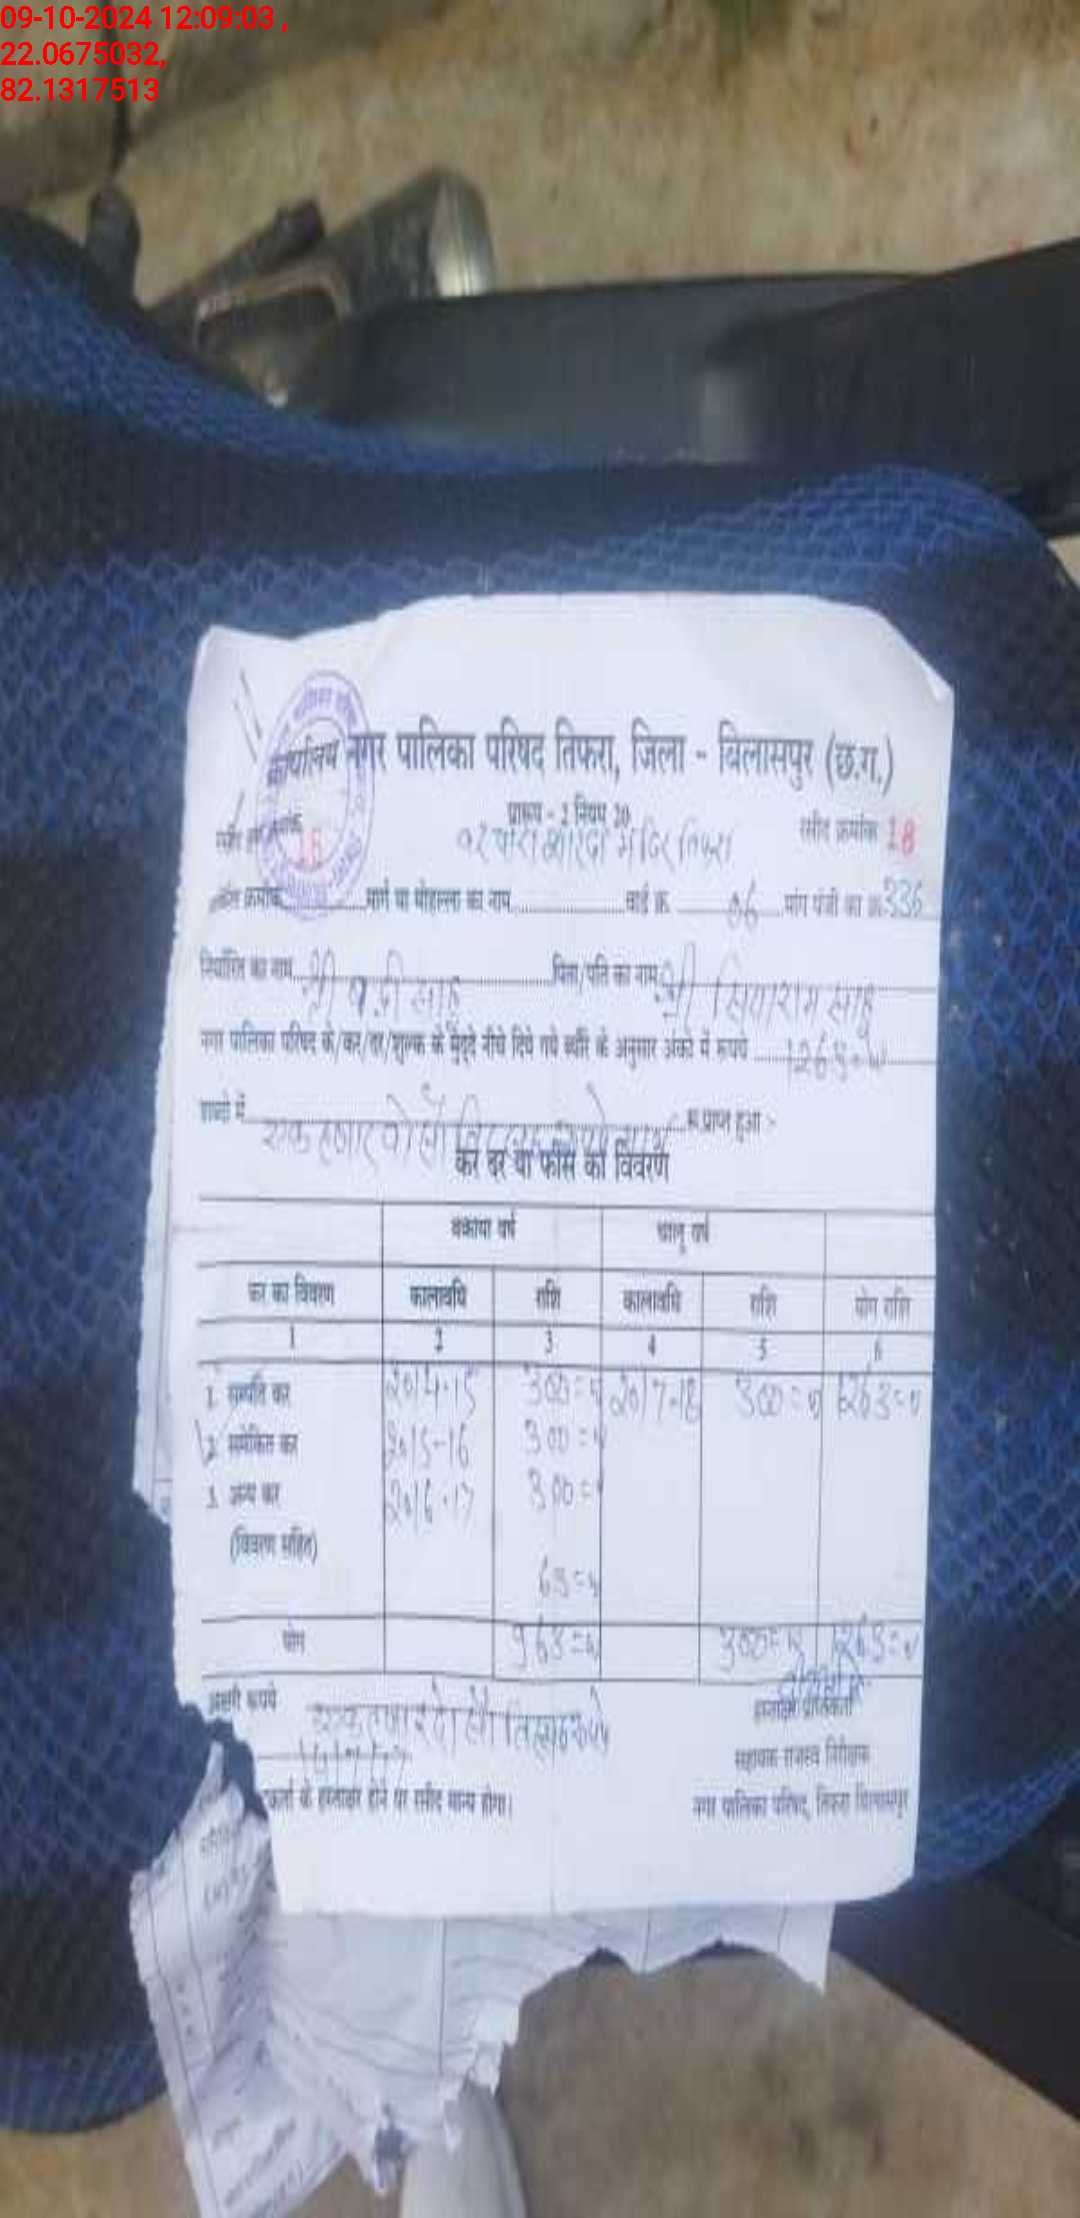 09-10-2024 12:09:03 ,
22.0675032,
82.1317513
कार्यालय नगर पालिका परिषद तिफरा, जिला - बिलासपुर (छ.ग.)
प्रारूप - 2 नियम 20
रसीद क्रमांक 18
18
मंदिर तिफरा
क्रमांक मार्ग या मोहल्ला का नाम वार्ड क्र. 06 मांग पंजी का क्र. 336
निर्धारित का नाम श्री साहू पिता/पति का नाम श्री सियाराम साहू
नगर पालिका परिषद के/कर/दर/शुल्क के मुद्दे नीचे दिये गये ब्यौरे के अनुसार अंकों में रूपये 1263=00
शब्दों में एक हजार दो सौ रू. प्राप्त हुआ :-
कर दर या फीस का विवरण
बकाया वर्ष चालू वर्ष
कर का विवरण कालावधि राशि कालावधि राशि योग राशि
1 2 3 4 5 6
1. सम्पत्ति कर 2014-15 300=00 2017-18 300=00 1263=00
2. समेकित कर 2015-16 300=00
3. अन्य कर 2016-17 300=00
(विवरण सहित)
63=00
योग 963=00 300=00 1263=00
अक्षरी रूपये एक हजार दो सौ
हस्ताक्षर प्राप्तिकर्ता
सहायक राजस्व निरीक्षक
के हस्ताक्षर होने पर रसीद मान्य होगा।
नगर पालिका परिषद, तिफरा बिलासपुर